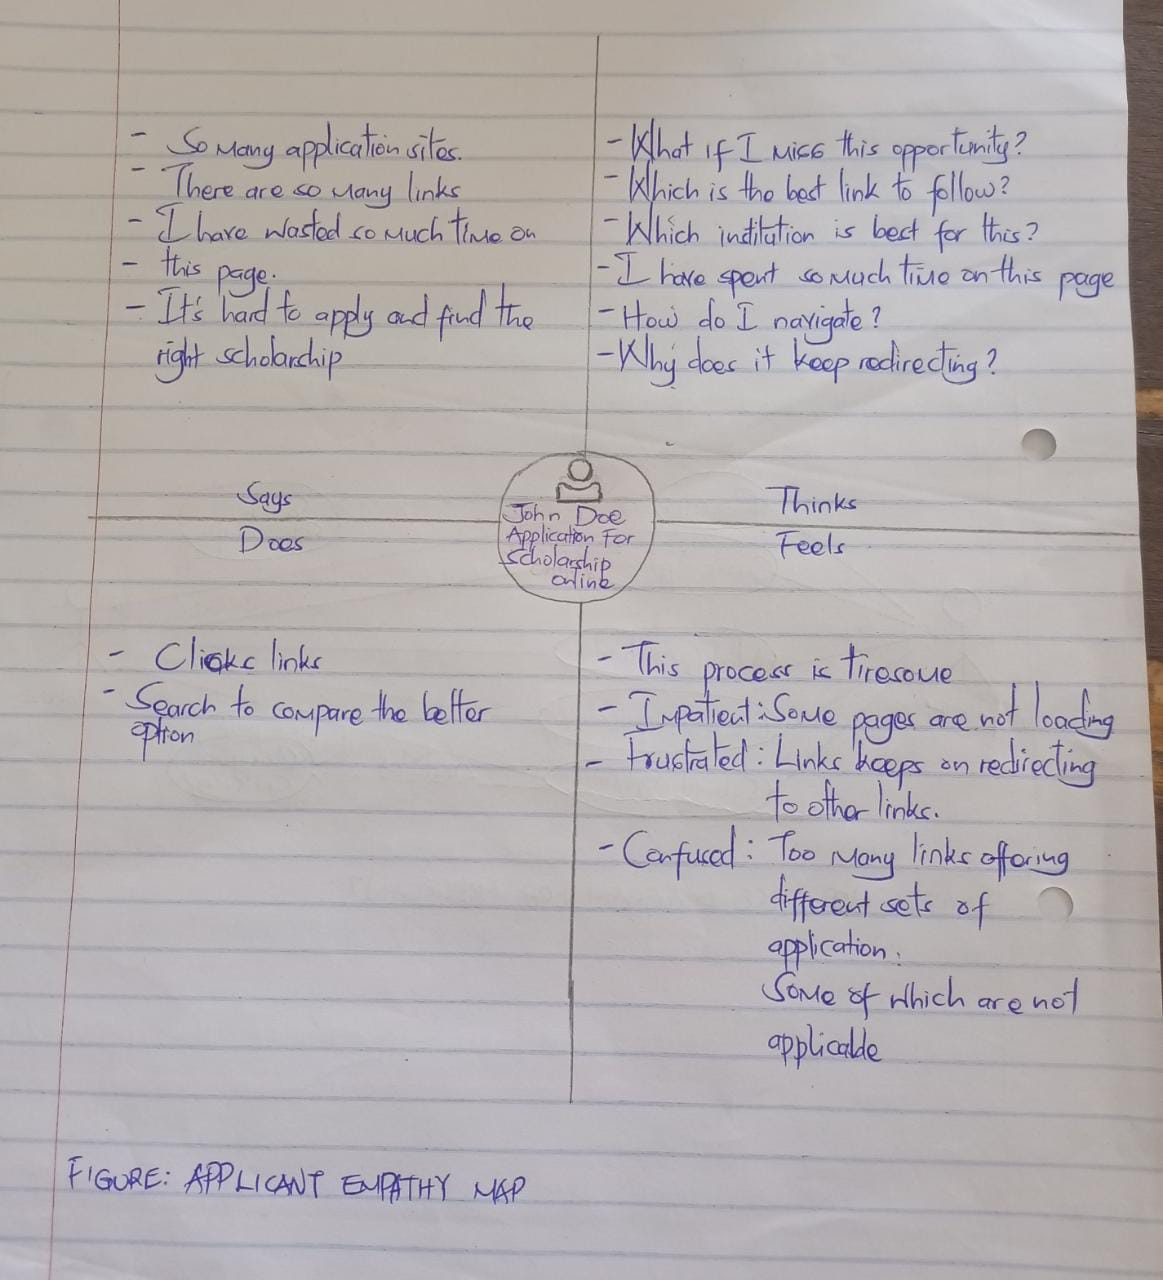 - So many application sites.
- There are so many links
- I have wasted so much time on
- this page.
- It's hard to apply and find the
right scholarship
- What if I miss this opportunity?
- Which is the best link to follow?
- Which institution is best for this?
- I have spent so much time on this page
- How do I navigate?
- Why does it keep redirecting?
Says
Thinks
John Doe
Application For
Scholarship
online
Does
Feels
- Clicks links
- Search to compare the better
option
- This process is tiresome
- Impatient: Some pages are not loading
- Frustrated: Links keeps on redirecting
to other links.
- Confused: Too many links offering
different sets of
application.
Some of which are not
applicable
FIGURE: APPLICANT EMPATHY MAP